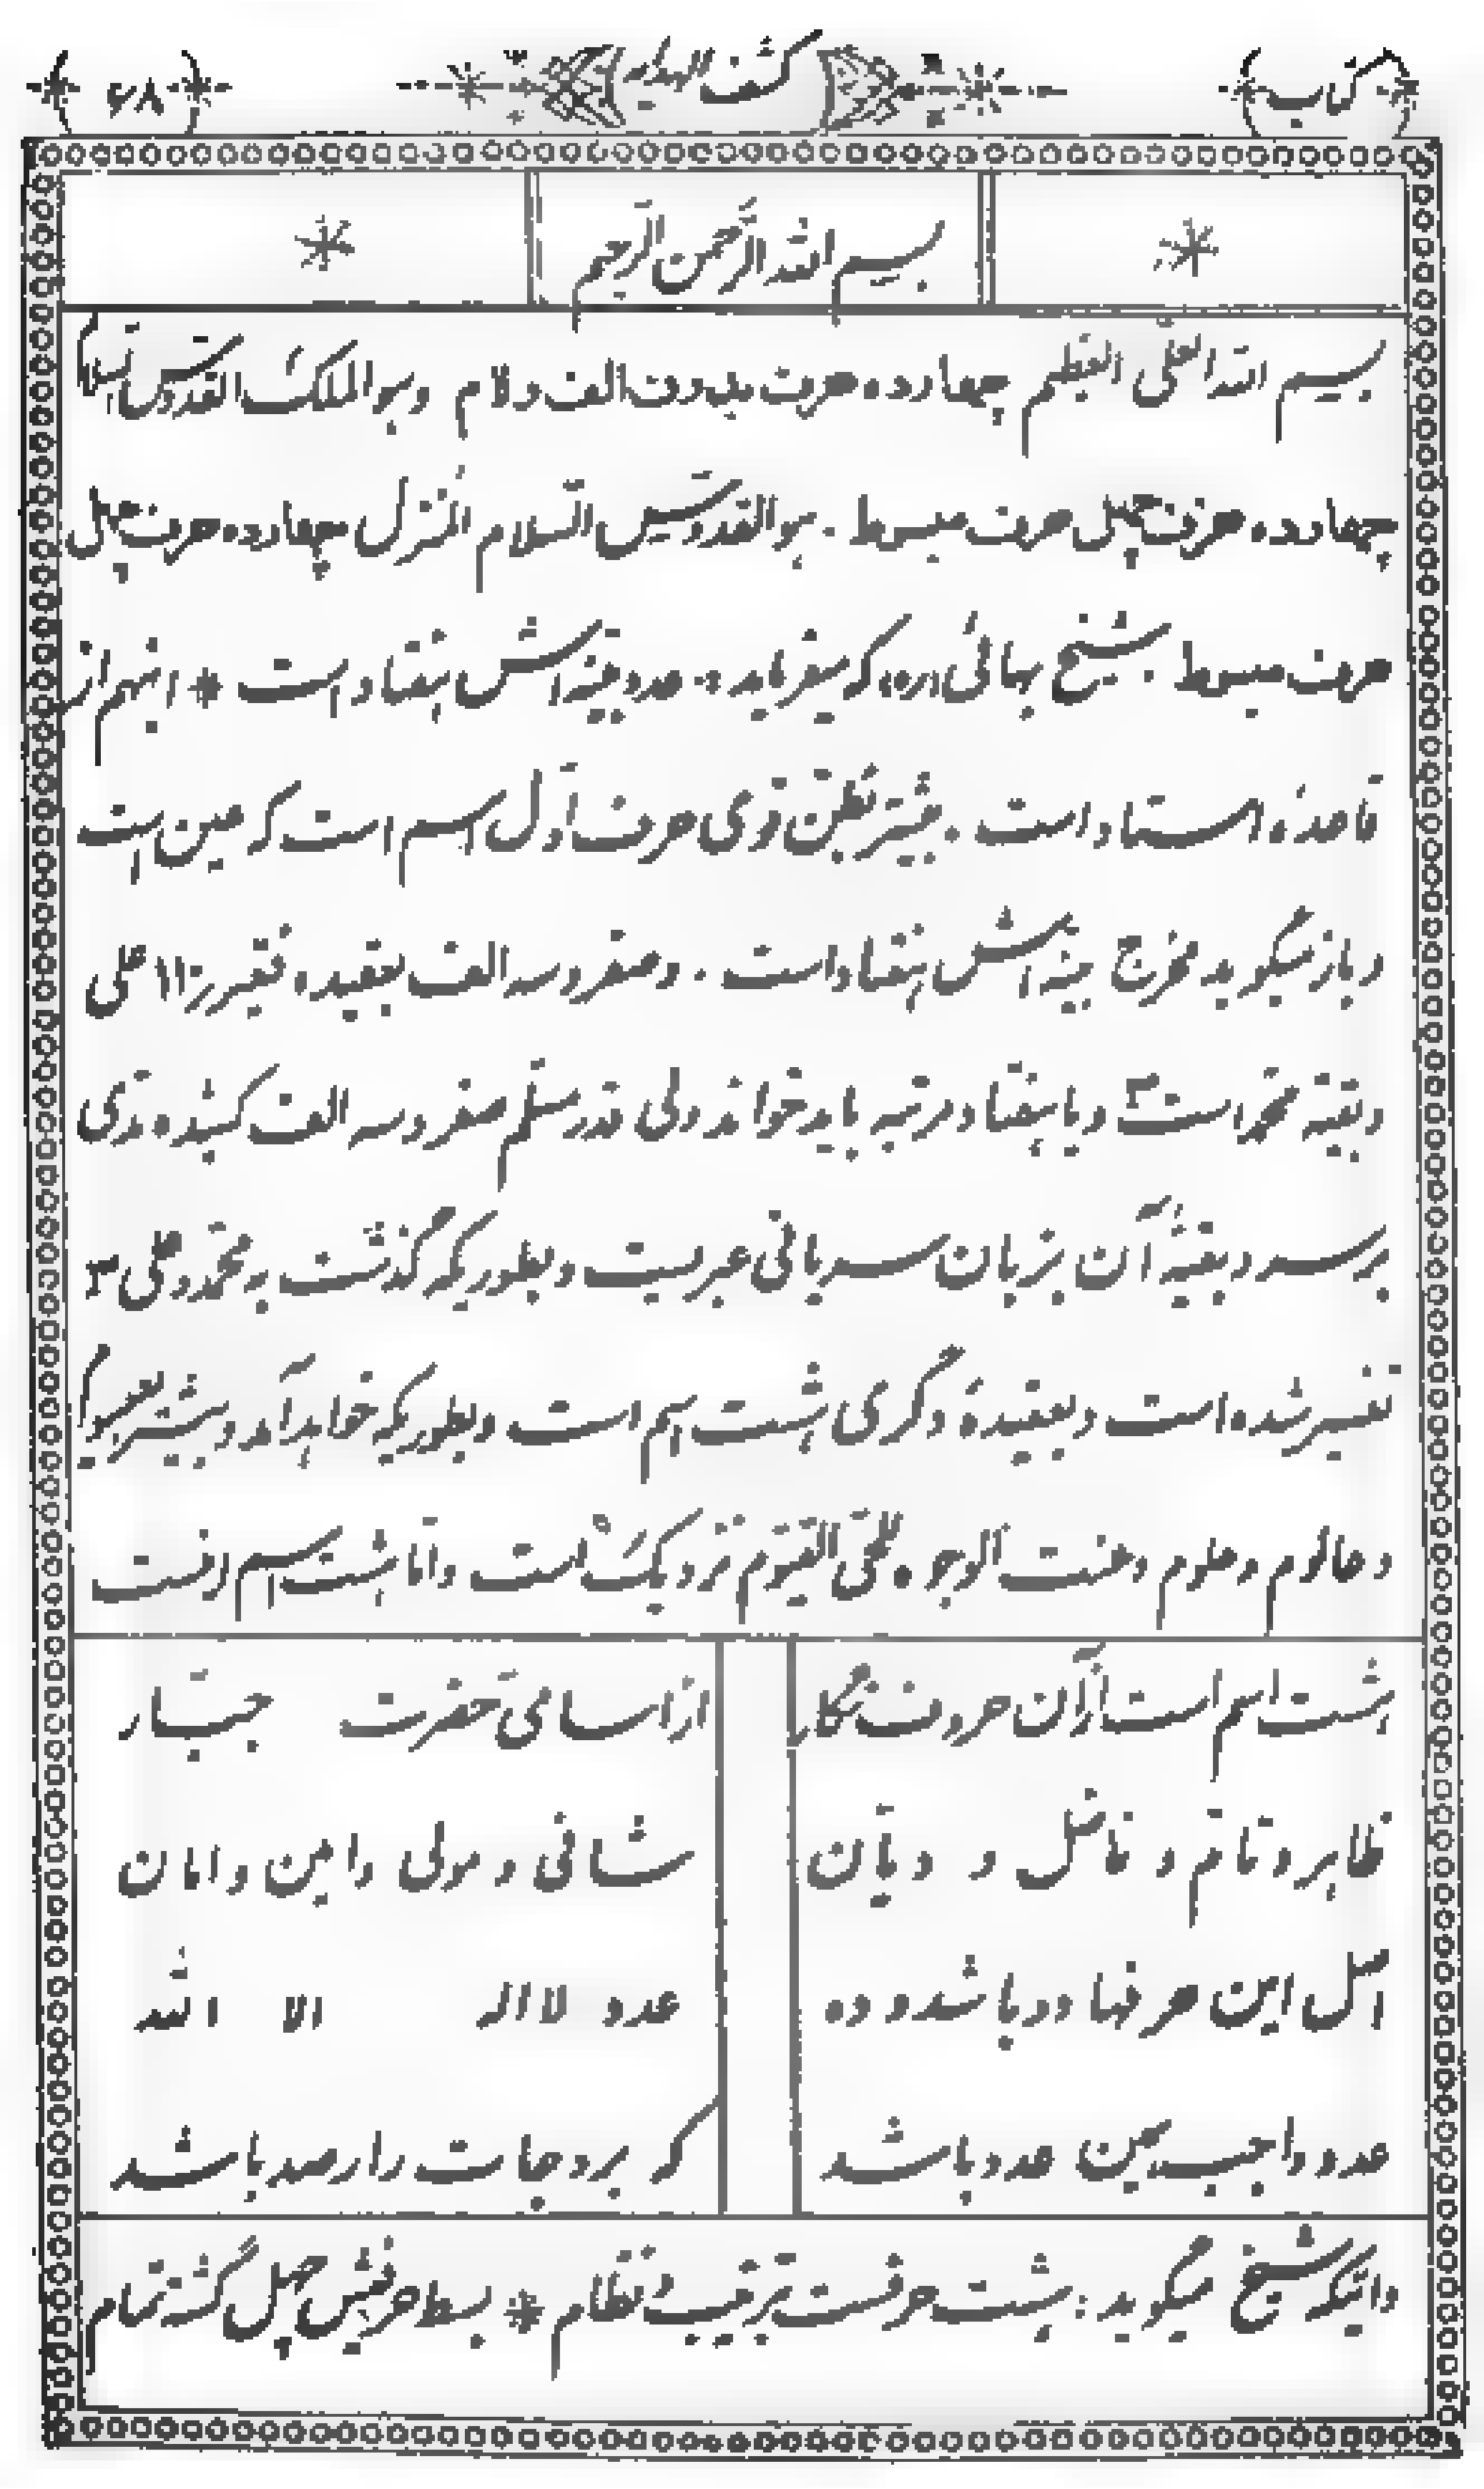 کتاب کشف الهدایه ۶۸
بسم الله الرحمن الرحیم
بسم الله العلی العظیم چهارده حرف بدون الف و لام وهو الملک القدوس السلام
چهارده حرف چهل حرف مبسوط . هو القدوس السلام المنزل چهارده حرف چهل
حرف مبسوط . شیخ بهائی (ره) که میفرماید : عدد بینه اش هفتاد است * اینهم از
قاعدهٔ استاد است . بیشتر نطق قوی حرف اول اسم است که عین است
و باز میگوید مخرج بینه اش هفتاد است . و صفر و سه الف بعقیده فقیر علی
و بقیه محمد است و با هفتاد مرتبه باید خواند ولی قدر مسلم صفر و سه الف کشیده قدی
برسد و بقیهٔ آن بزبان سریانی عبریست و بطوریکه گذشت به محمد و علی
تفسیر شده است و بعقیدهٔ دگری هشت اسم است و بطوریکه خواهد آمد و بیشتر
و عالوم و علوم و عنت الوجوه للحی القیوم نزدیک است و اما هشت اسم
هشت اسم است از آن حروف نگار از اسامی حضرت جبار
ظاهر و تام و فاضل و دیان شافی و مولی و امین و امان
اصل این حرفها دو باشد و ده عدد لا اله الا الله
عدد واجب عدد باشد که بردجات را رصد باشد
و اینکه شیخ میگوید : هشت حرفست ترتیب نظام * بسط حرفیش چهل گشته تمام